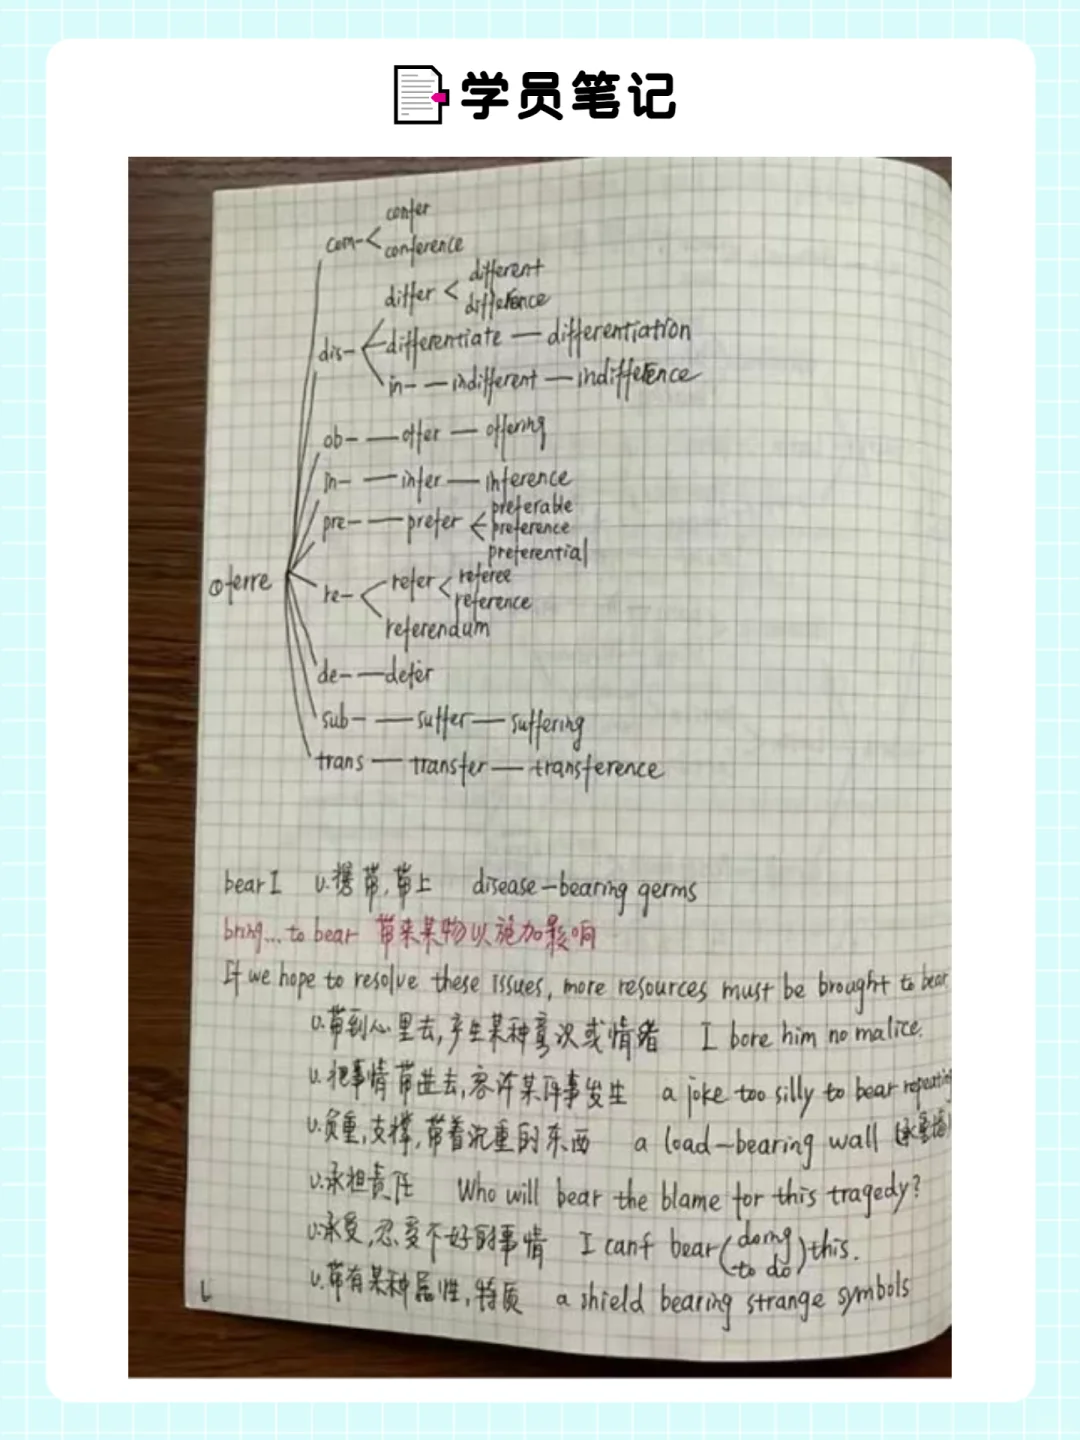 学员笔记
confer
com- < conference
different
differ < difference
dis- differentiate — differentiation
in- — indifferent — indifference
ob- — offer — offering
in- — infer — inference
preferable
pre- — prefer < preference
preferential
①ferre
refer < referee
re- < reference
referendum
de- — defer
sub- — suffer — suffering
trans — transfer — transference
bear I v.携带,带上 disease-bearing germs
bring...to bear 带来某物以施加影响
If we hope to resolve these issues, more resources must be brought to bear
v.带到心里去,产生某种意识或情绪 I bore him no malice.
v.把事情带进去,容许某件事发生 a joke too silly to bear repeating
v.负重,支撑,带着沉重的东西 a load-bearing wall (承重墙)
v.承担责任 Who will bear the blame for this tragedy?
v.承受,忍受不好的事情 I can't bear (doing / to do) this.
v.带有某种属性,特质 a shield bearing strange symbols